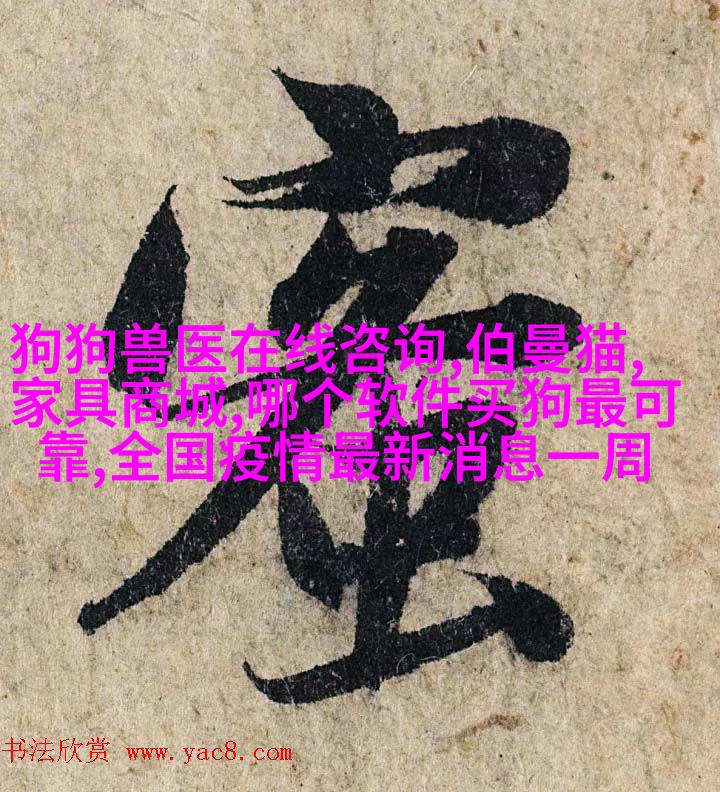 狗狗兽医在线咨询,伯曼猫,
家具商城,哪个软件买狗最可
靠,全国疫情最新消息一周
书法欣赏 www.yac8.com